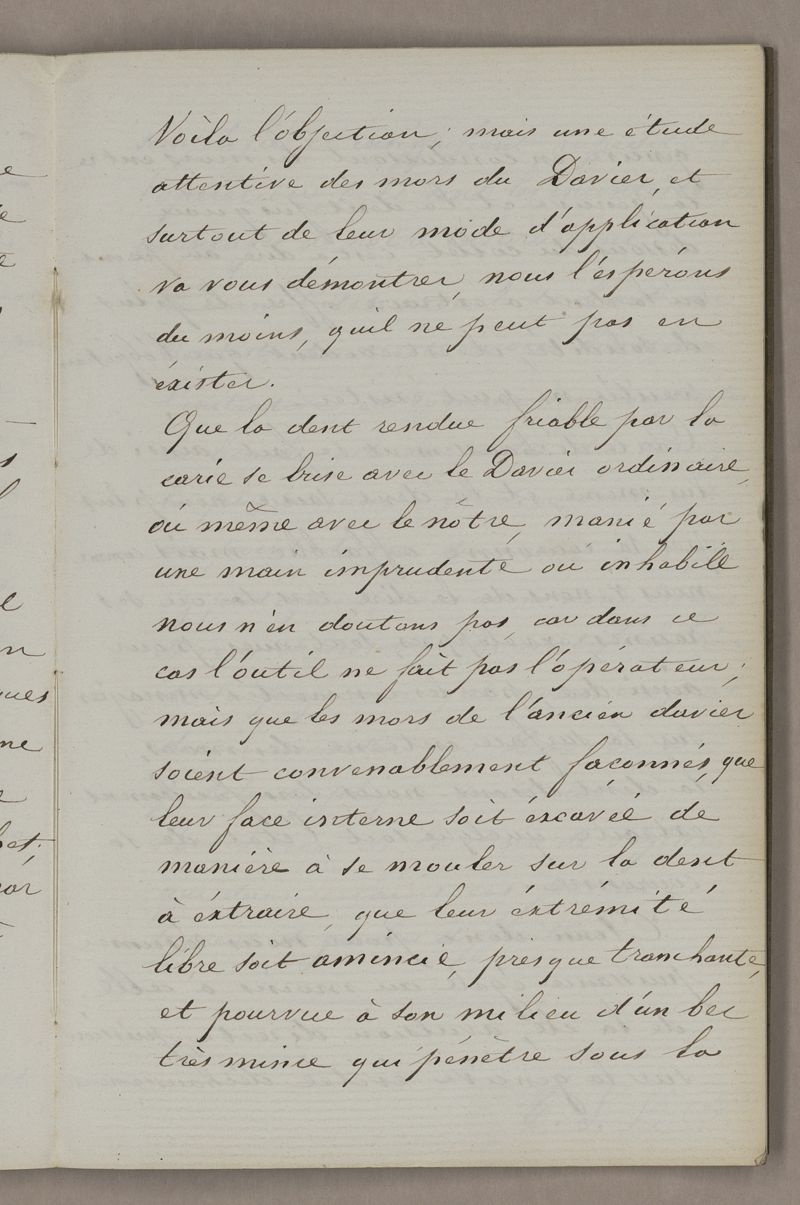 Voilà l'objection; mais une étude
attentive des mors du Davier, et
surtout de leur mode d'application
va vous démontrer, nous l'espérons
du moins, qu'il ne peut pas en
éxister.
Que la dent rendue friable par la
carie se brise avec le Davier ordinaire,
ou même avec le nôtre, manié par
une main imprudente ou inhabile
nous n'en doutons pas, car dans ce
cas l'outil ne fait pas l'opérateur;
mais que les mors de l'ancien davier
soient convenablement façonnés, que
leur face interne soit éxcavée de
manière à se mouler sur la dent
à éxtraire, que leur éxtrémité
libre soit amincie, presque tranchante,
et pourvue à son milieu d'un bec
très mince qui pénètre sous la